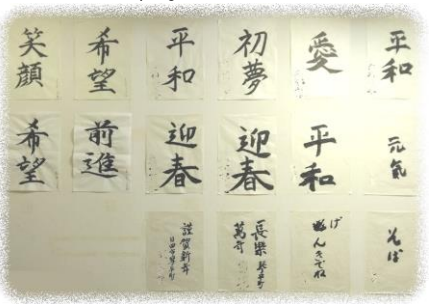 笑顔
希望
平和
初夢
愛
平和
希望
前進
迎春
迎春
平和
元気
謹賀新年
長楽
萬年
そば